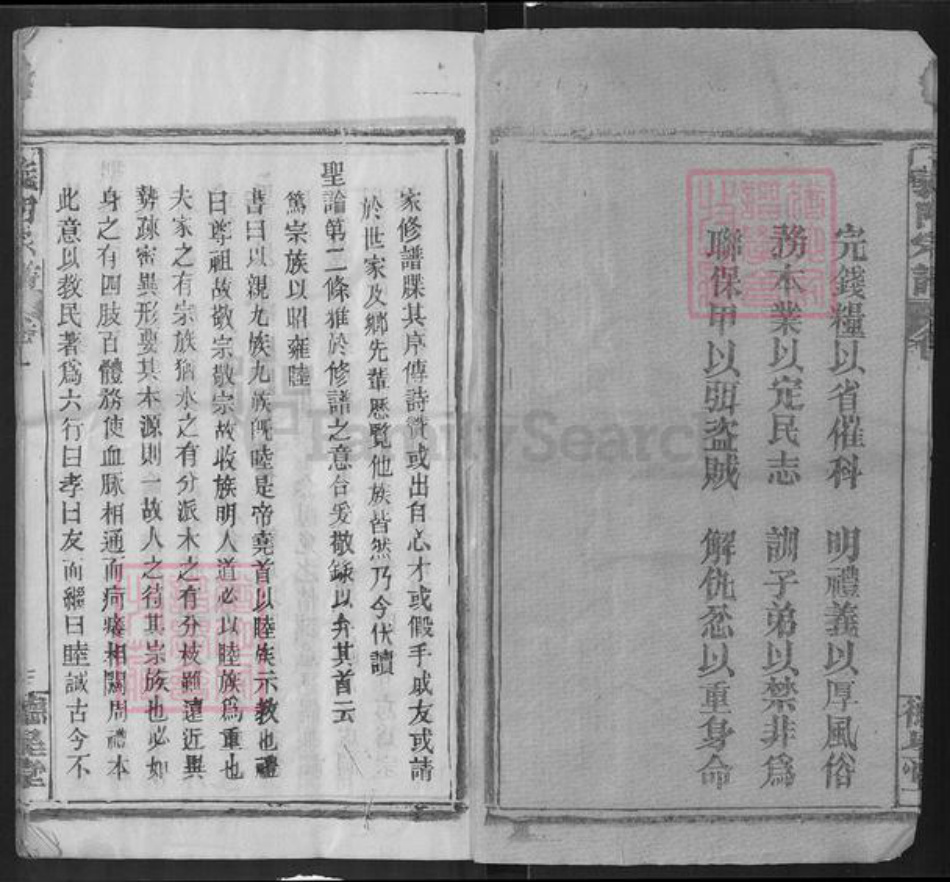 完錢糧以省催科　明禮義以厚風俗
務本業以定民志　訓子弟以禁非為
聯保甲以弭盜賊　解仇忿以重身命
家修譜牒其序傳詩贊或出自心才或假手戚友或請
於世家及鄉先輩歷覽他族皆然乃今伏讀
聖諭第二條雅於修譜之意合爰敬錄以弁其首云
篤宗族以昭雍睦
書曰以親九族九族既睦是帝堯首以睦族示教也禮
曰尊祖故敬宗敬宗故收族明人道必以睦族為重也
夫家之有宗族猶水之有分派木之有分枝雖遠近異
勢疎密異形要其本源則一故人之待其宗族也必如
身之有四肢百體務使血脉相通而疴癢相關周禮本
此意以教民著為六行曰孝曰友而繼曰睦誠古今不
FamilySearch